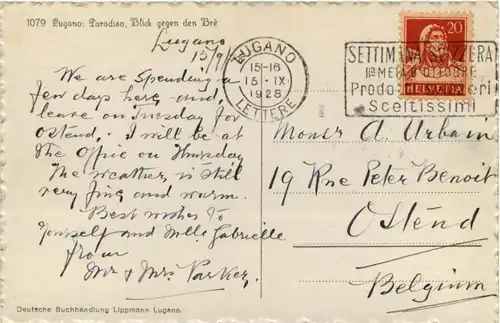 1079 Lugano: Paradiso, Blick gegen den Brè
Lugano
15/9
We are spending a
few days here and
leave on Tuesday for
Ostend. I will be at
the Office on Thursday
The weather is still
very fine and warm.
Best wishes to
yourself and Mlle Gabrielle
from
Mr & Mrs Parker.
Deutsche Buchhandlung Lippmann Lugano.
LUGANO
15-16
15. IX
1928
LETTERE
SETTIMANA SVIZZERA
IIa METÀ OTTOBRE
Sceltissimi
20
HELVETIA
Monsr A. Urbain
19 Rue Peter Benoit
Ostend
Belgium